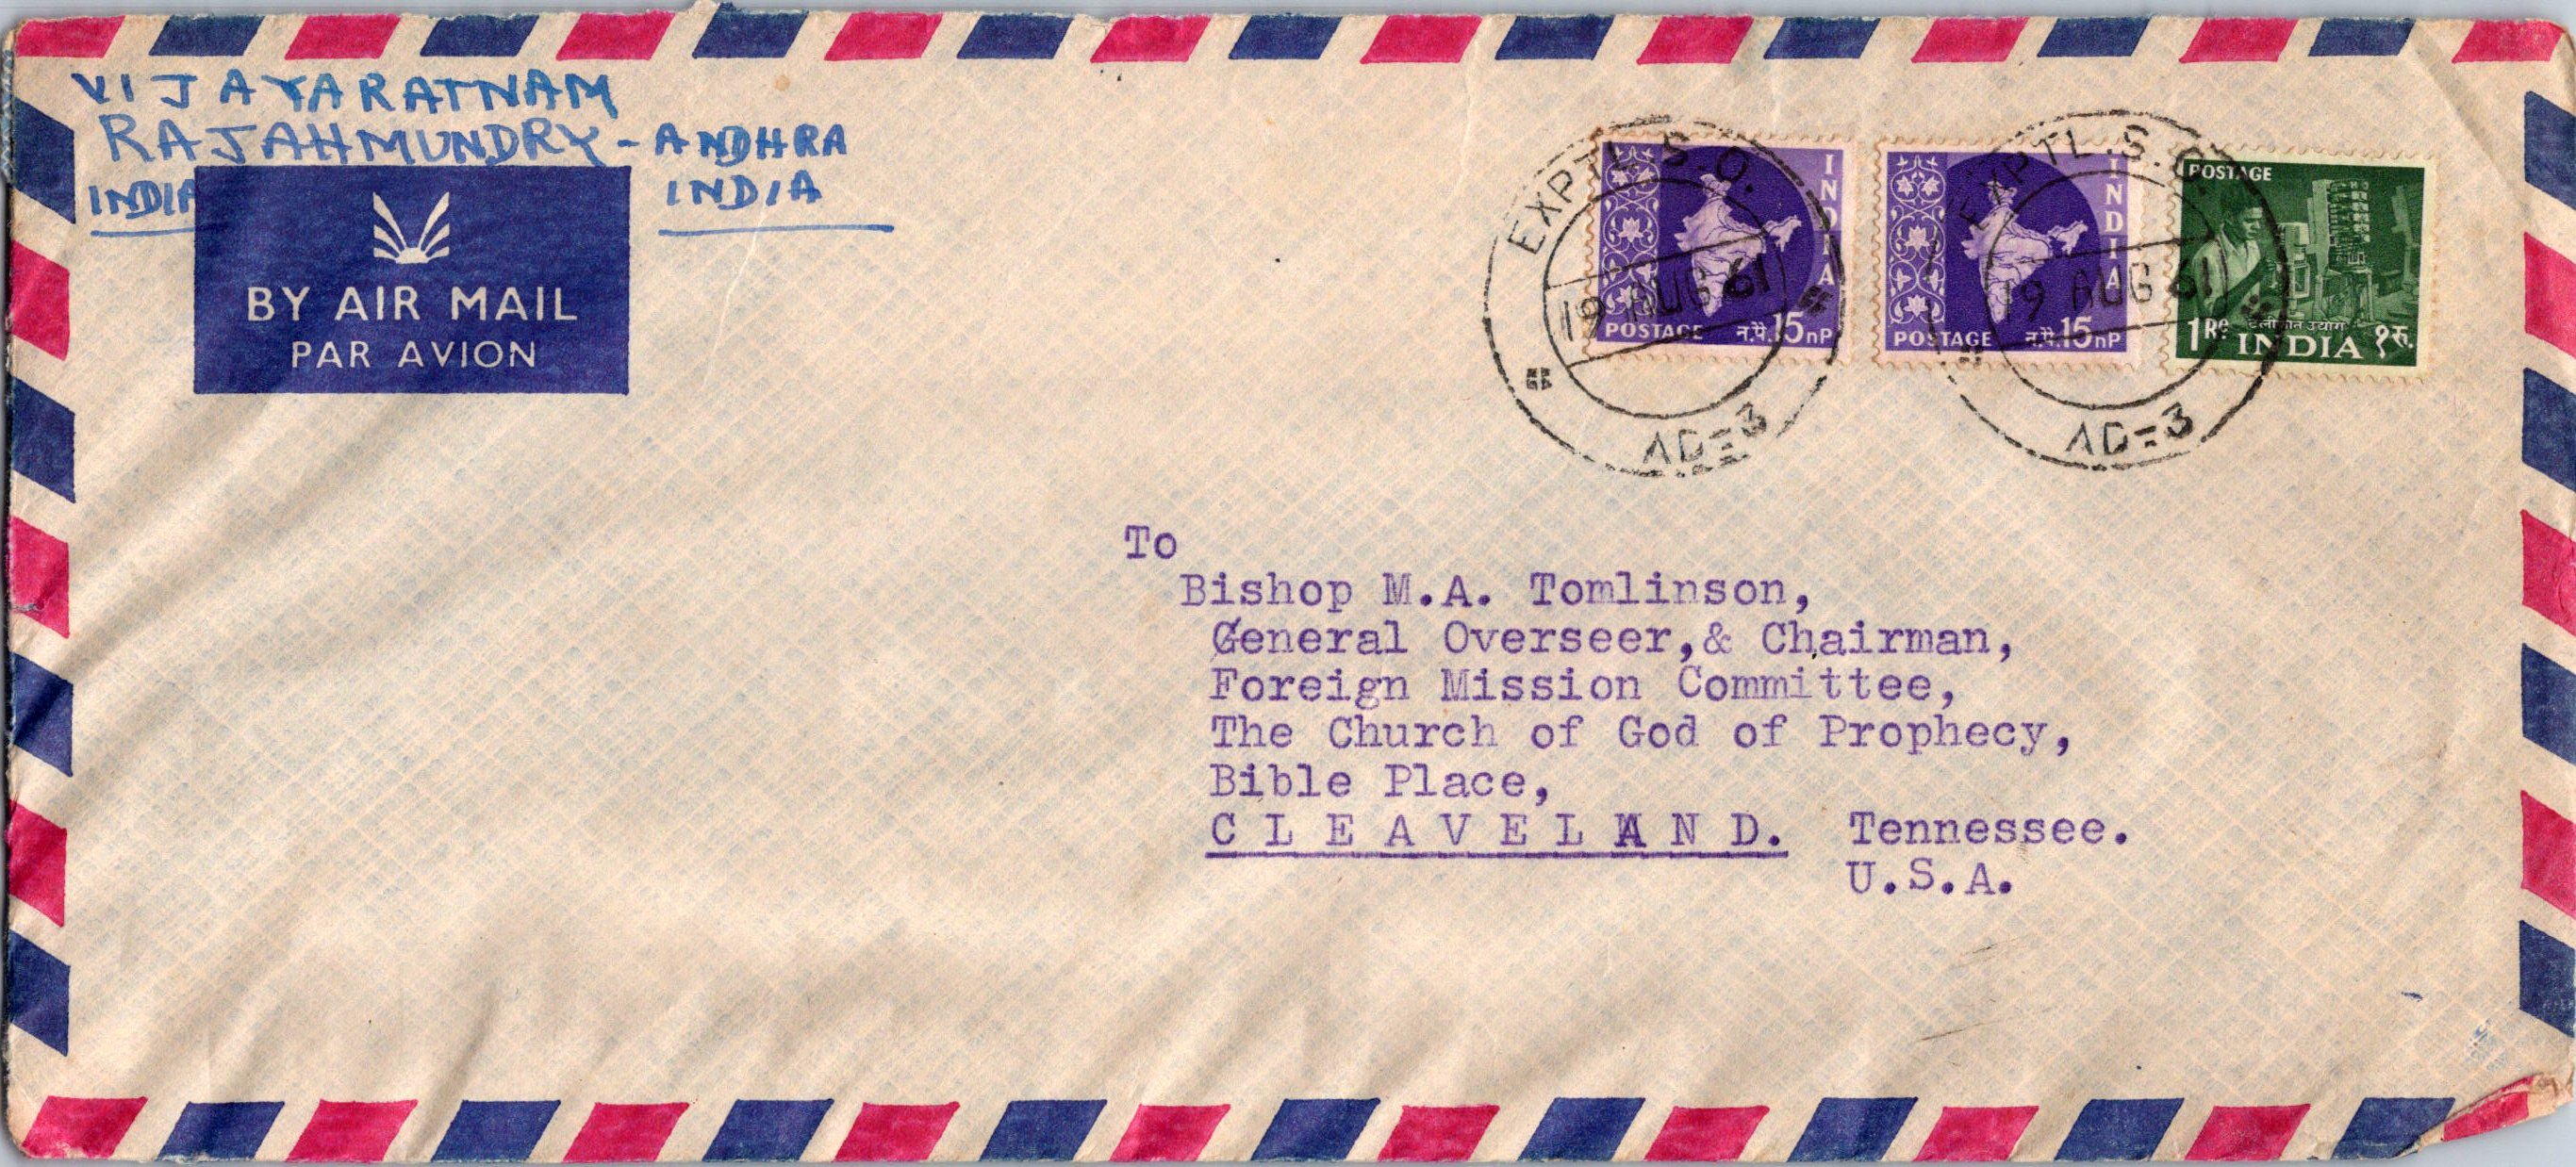 VIJAYARATNAM
RAJAHMUNDRY - ANDHRA
INDIA INDIA
BY AIR MAIL
PAR AVION
EXPTL. S. O.
19 AUG 61
AD=3
INDIA
POSTAGE न.पै. 15 nP
EXPTL. S. O.
19 AUG 61
AD=3
INDIA
POSTAGE न.पै. 15 nP
POSTAGE
टेलीफोन उद्योग
1 Re. INDIA १ रु.
To
Bishop M.A. Tomlinson,
General Overseer,& Chairman,
Foreign Mission Committee,
The Church of God of Prophecy,
Bible Place,
C L E A V E L A N D. Tennessee.
U.S.A.